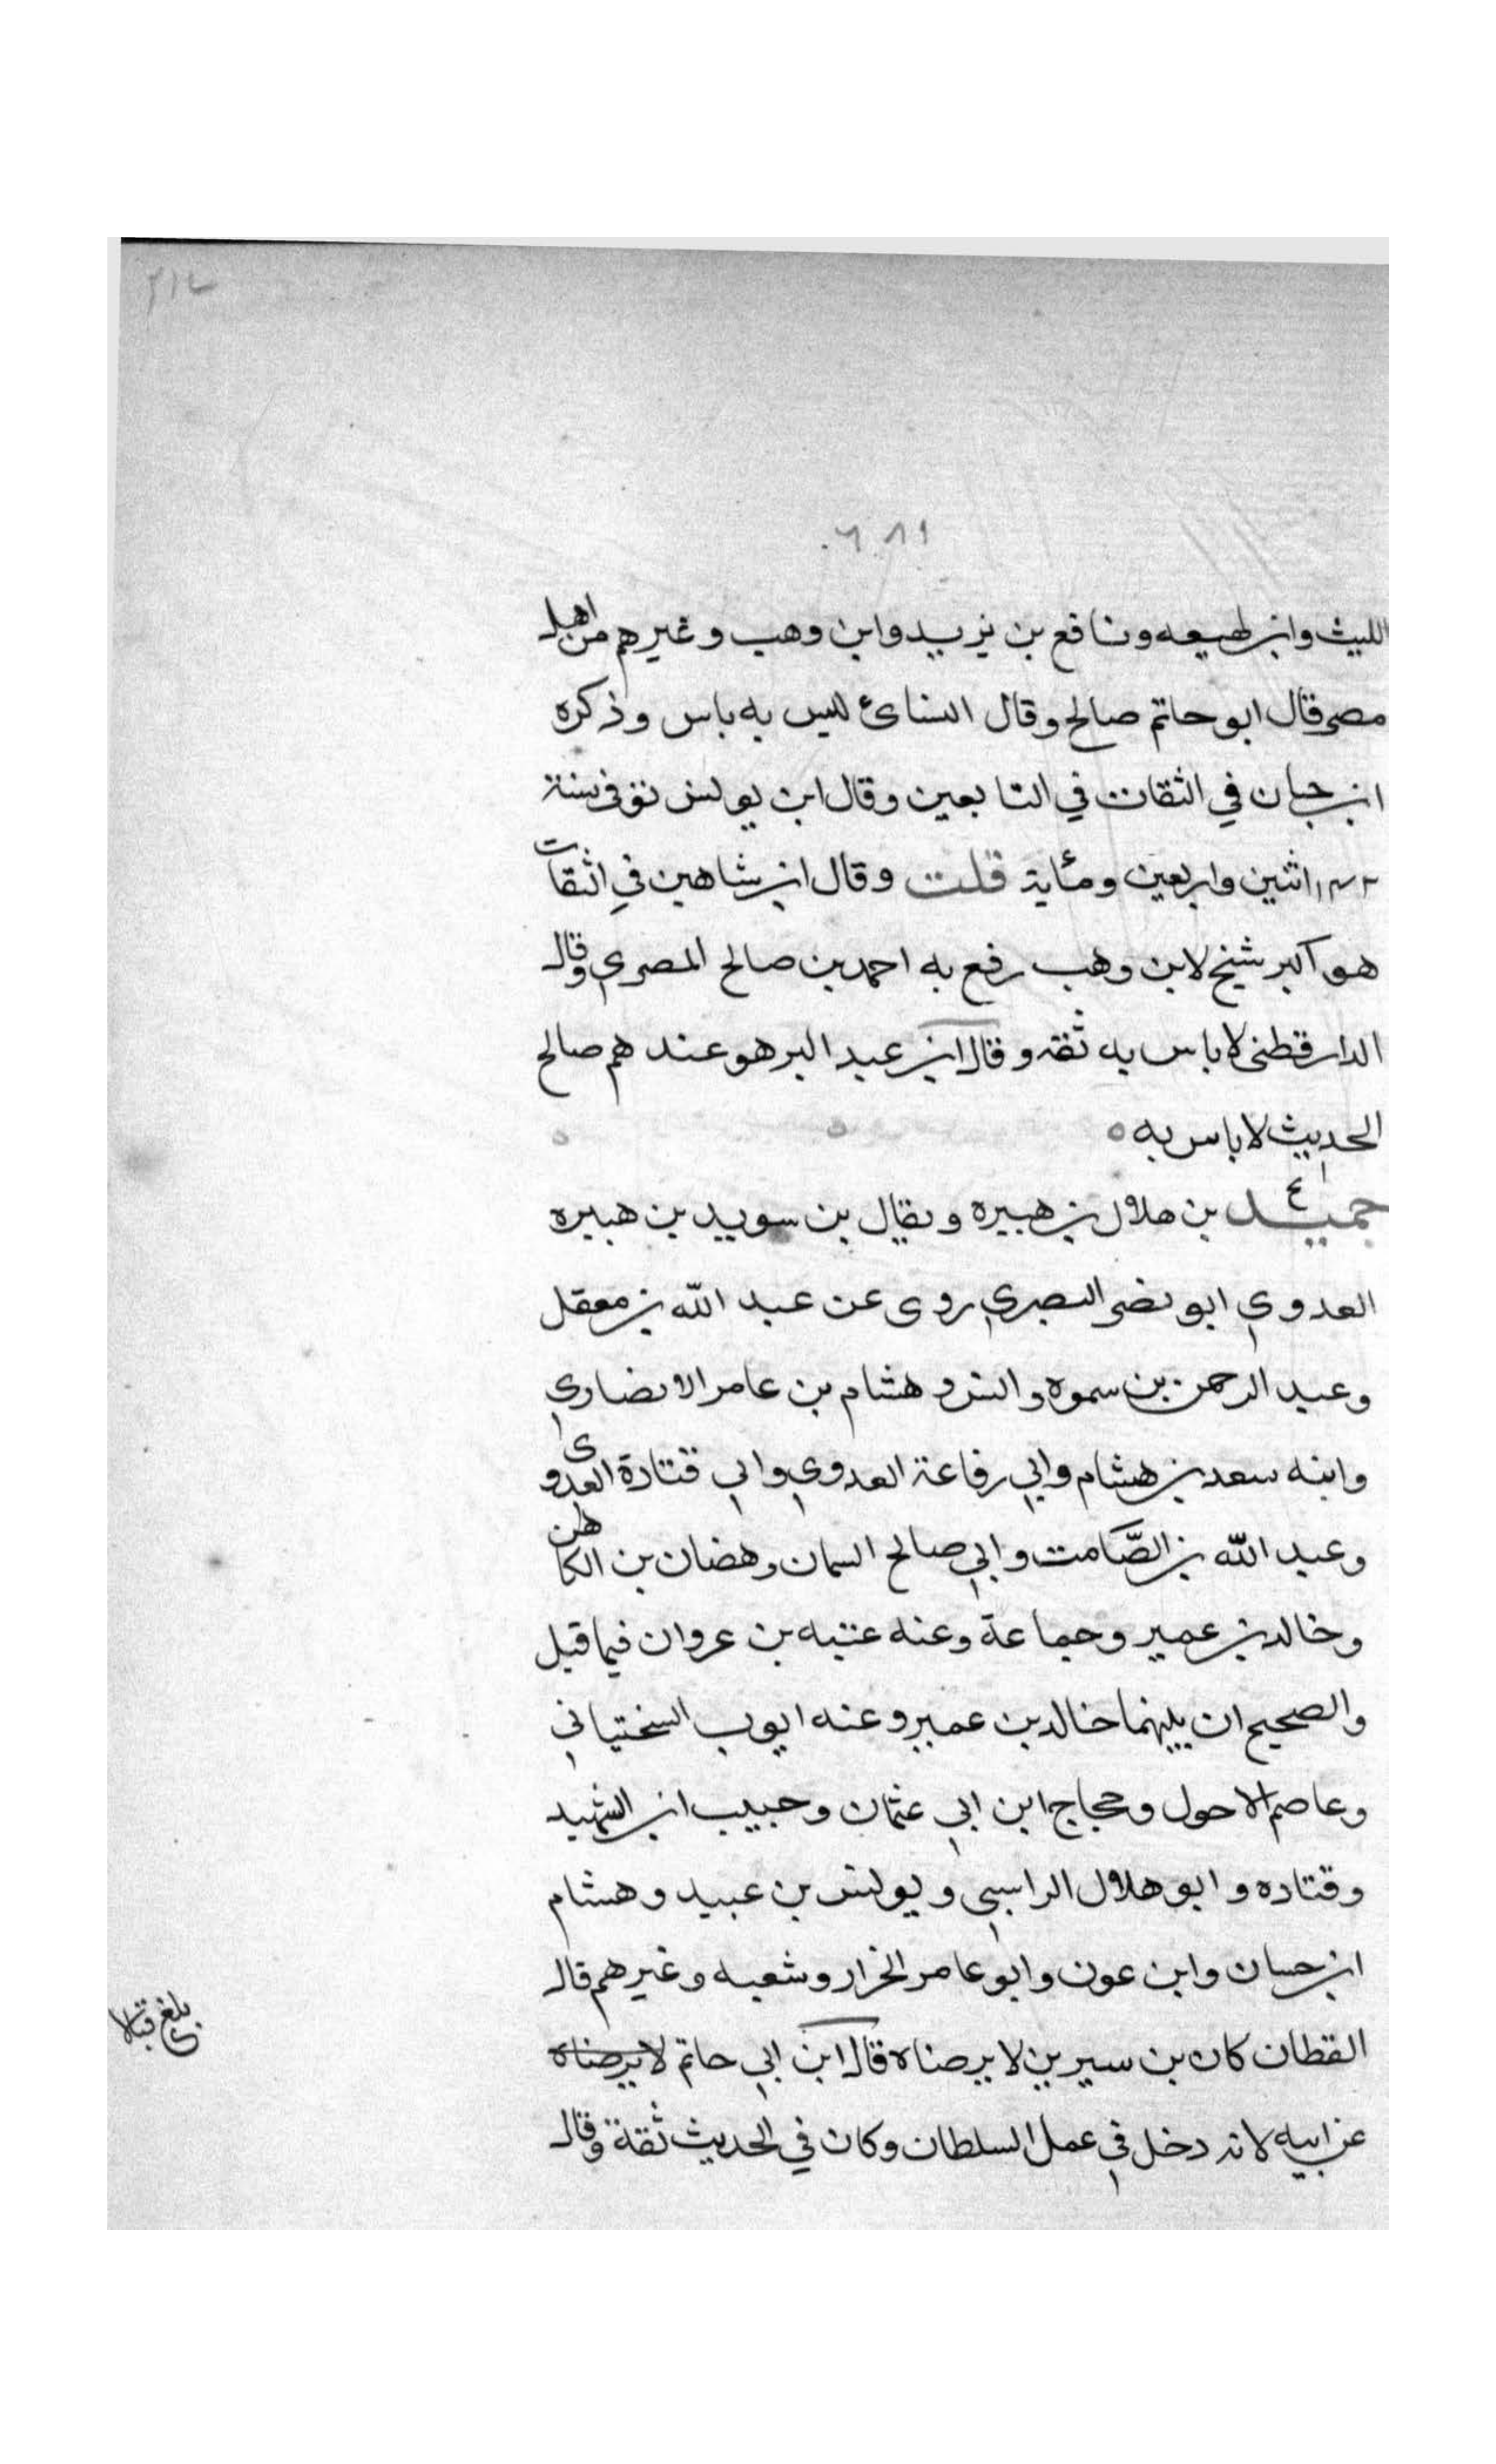 الليث وابن لهيعه ونافع بن يزيد وابن وهب وغيرهم من اهل
مصر قال ابو حاتم صالح وقال النسائ ليس به باس وذكره
ابن حبان في الثقات في التابعين وقال ابن يونس توفى سنة
اثنين واربعين ومئاية قلت وقال ابن شاهين في الثقات
هو اكبر شيخ لابن وهب رفع به احمد بن صالح المصري وقال
الدارقطنى لا باس به ثقه وقال ابن عبد البر هو عندهم صالح
الحديث لا باس به ٥
حميد بن هلال بن هبيره ويقال بن سويد بن هبيره
ع
العدوي ابو نصر البصري روى عن عبد الله بن معقل
وعبد الرحمن بن سموه وانس وهشام بن عامر الانصاري
وابنه سعد بن هشام وابي رفاعة العدوي وابي قتادة العدوى
وعبد الله بن الصَّامت وابي صالح السمان وهضان بن الكاهن
وخالد بن عمير وجماعة وعنه عتبه بن عروان فيما قيل
والصحيح ان بينهما خالد بن عمير وعنه ايوب السختياني
وعاصم الاحول وحجاج ابن ابي عثمان وحبيب ابن الشهيد
وقتاده وابو هلال الراسبي ويونس بن عبيد وهشام
ابن حسان وابن عون وابو عامر الخرار وشعبه وغيرهم قال
القطان كان بن سيرين لا يرضاه قال ابن ابي حاتم لا يرضاه
عن ابيه لانه دخل في عمل السلطان وكان في الحديث ثقة وقال